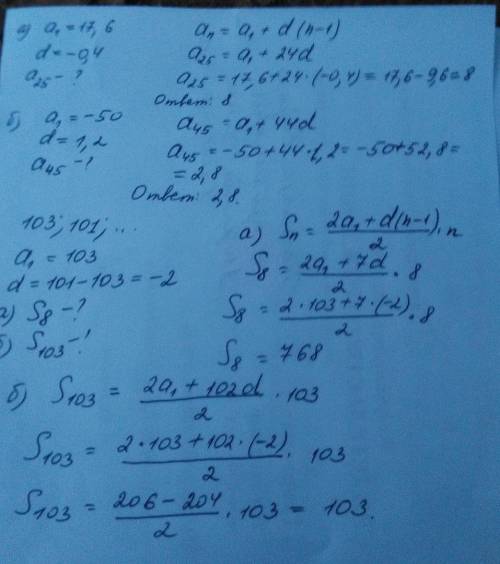 а) a₁ = 17,6
d = -0,4
a₂₅ - ?
aₙ = a₁ + d(n-1)
a₂₅ = a₁ + 24d
a₂₅ = 17,6 + 24·(-0,4) = 17,6 - 9,6 = 8
Ответ: 8
б) a₁ = -50
d = 1,2
a₄₅ - ?
a₄₅ = a₁ + 44d
a₄₅ = -50 + 44·1,2 = -50 + 52,8 =
= 2,8
Ответ: 2,8.
103; 101; ...
a₁ = 103
d = 101 - 103 = -2
а) S₈ - ?
б) S₁₀₃ - ?
а) Sₙ = (2a₁ + d(n-1))/2 · n
S₈ = (2a₁ + 7d)/2 · 8
S₈ = (2·103 + 7·(-2))/2 · 8
S₈ = 768
б) S₁₀₃ = (2a₁ + 102d)/2 · 103
S₁₀₃ = (2·103 + 102·(-2))/2 · 103
S₁₀₃ = (206 - 204)/2 · 103 = 103.